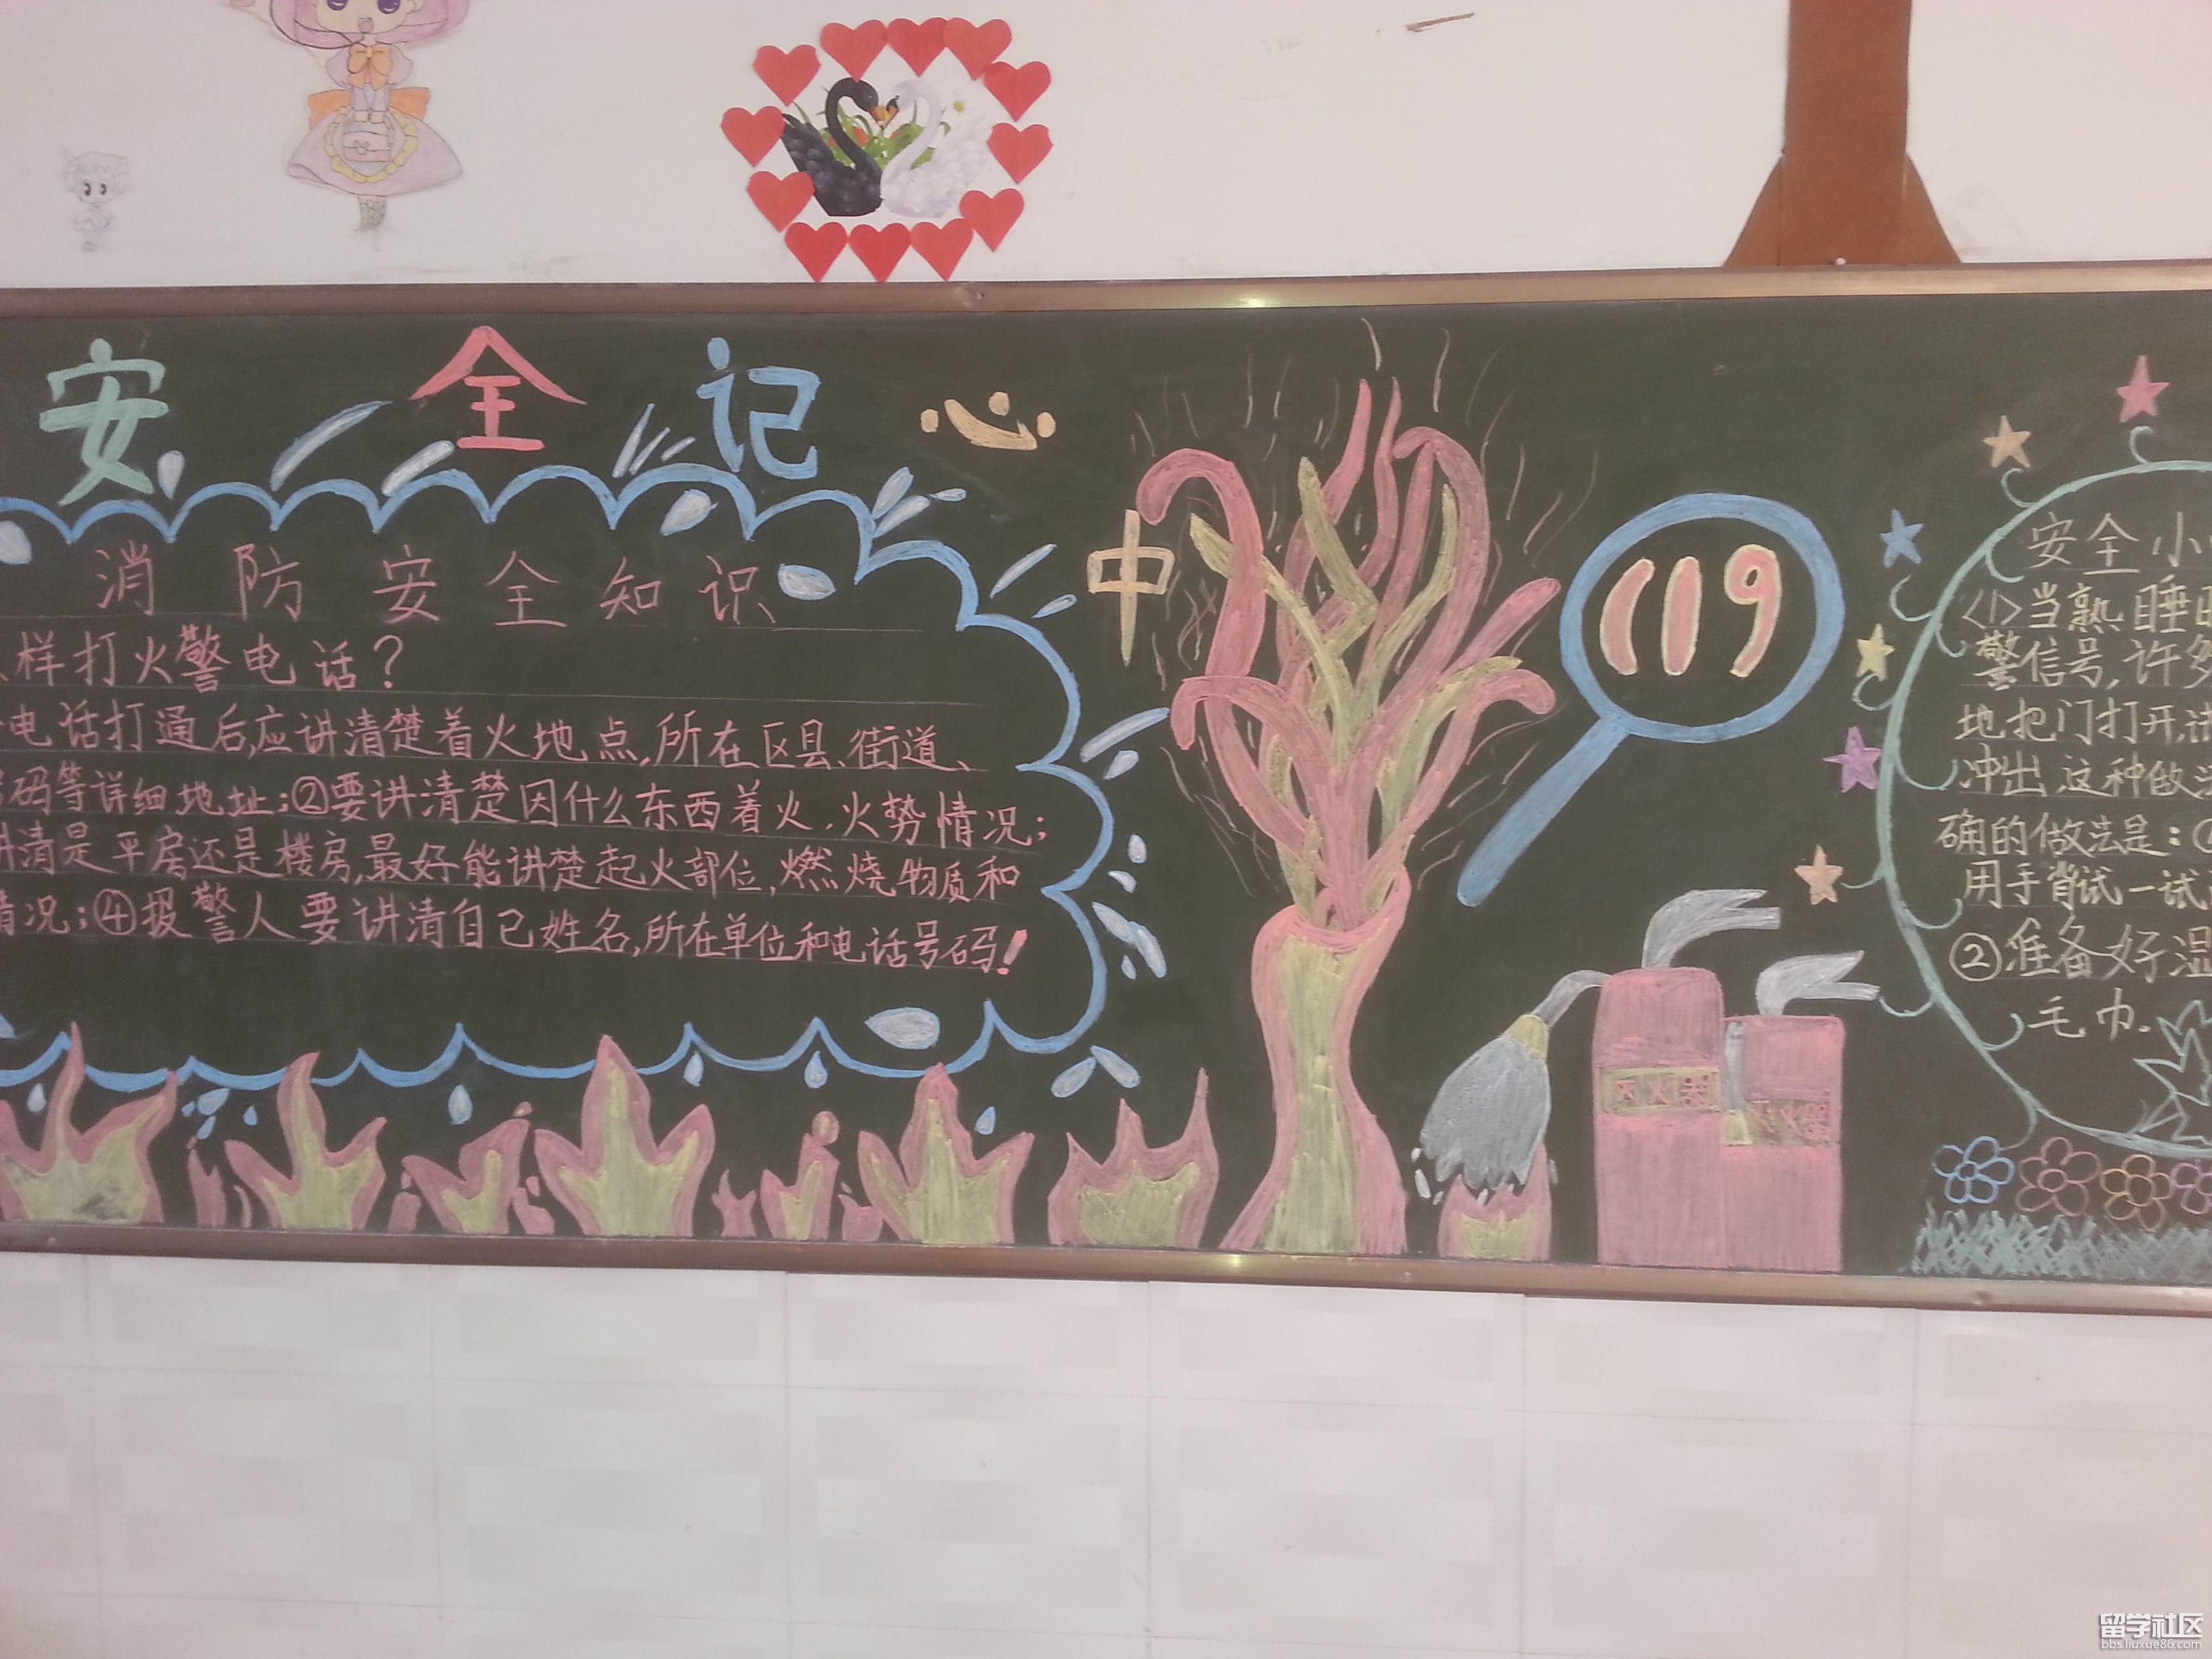 安全记心中
消防安全知识
样打火警电话?
电话打通后,应讲清楚着火地点,所在区县、街道、
码等详细地址;②要讲清楚因什么东西着火,火势情况;
讲清是平房还是楼房,最好能讲楚起火部位,燃烧物质和
情况;④报警人要讲清自己姓名,所在单位和电话号码!
119
灭火器
灭火器
安全小
<1>当熟睡
警信号,许多
地把门打开,
冲出.这种做法
确的做法是:①
用手背试一试
②准备好湿
毛巾.
留学社区
bbs.liuxue86.com